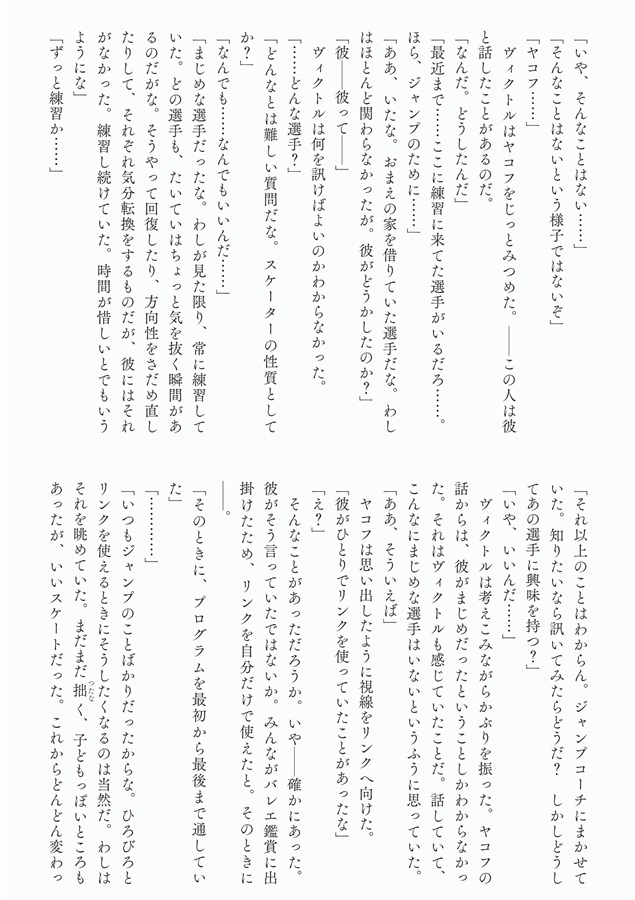 「いや、そんなことはない……」
「そんなことはないという様子ではないぞ」
「ヤコフ……」
　ヴィクトルはヤコフをじっとみつめた。――この人は彼
と話したことがあるのだ。
「なんだ。どうしたんだ」
「最近まで……ここに練習に来てた選手がいるだろ……。
ほら、ジャンプのために……」
「ああ、いたな。おまえの家を借りていた選手だな。わし
はほとんど関わらなかったが。彼がどうかしたのか？」
「彼――彼って――」
　ヴィクトルは何を訊けばよいのかわからなかった。
「……どんな選手？」
「どんなとは難しい質問だな。スケーターの性質として
か？」
「なんでも……なんでもいいんだ……」
「まじめな選手だったな。わしが見た限り、常に練習して
いた。どの選手も、たいていはちょっと気を抜く瞬間があ
るのだがな。そうやって回復したり、方向性をさだめ直し
たりして、それぞれ気分転換をするものだが、彼にはそれ
がなかった。練習し続けていた。時間が惜しいとでもいう
ようにな」
「ずっと練習か……」
「それ以上のことはわからん。ジャンプコーチにまかせて
いた。知りたいなら訊いてみたらどうだ？　しかしどうし
てあの選手に興味を持つ？」
「いや、いいんだ……」
　ヴィクトルは考えこみながらかぶりを振った。ヤコフの
話からは、彼がまじめだったということしかわからなかっ
た。それはヴィクトルも感じていたことだ。話していて、
こんなにまじめな選手はいないというふうに思っていた。
「ああ、そういえば」
　ヤコフは思い出したように視線をリンクへ向けた。
「彼がひとりでリンクを使っていたことがあったな」
「え？」
　そんなことがあっただろうか。いや――確かにあった。
彼がそう言っていたではないか。みんながバレエ鑑賞に出
掛けたため、リンクを自分だけで使えたと。そのときに
――。
「そのときに、プログラムを最初から最後まで通してい
た」
「…………」
「いつもジャンプのことばかりだったからな。ひろびろと
リンクを使えるときにそうしたくなるのは当然だ。わしは
それを眺めていた。まだまだ拙つたなく、子どもっぽいところも
あったが、いいスケートだった。これからどんどん変わっ